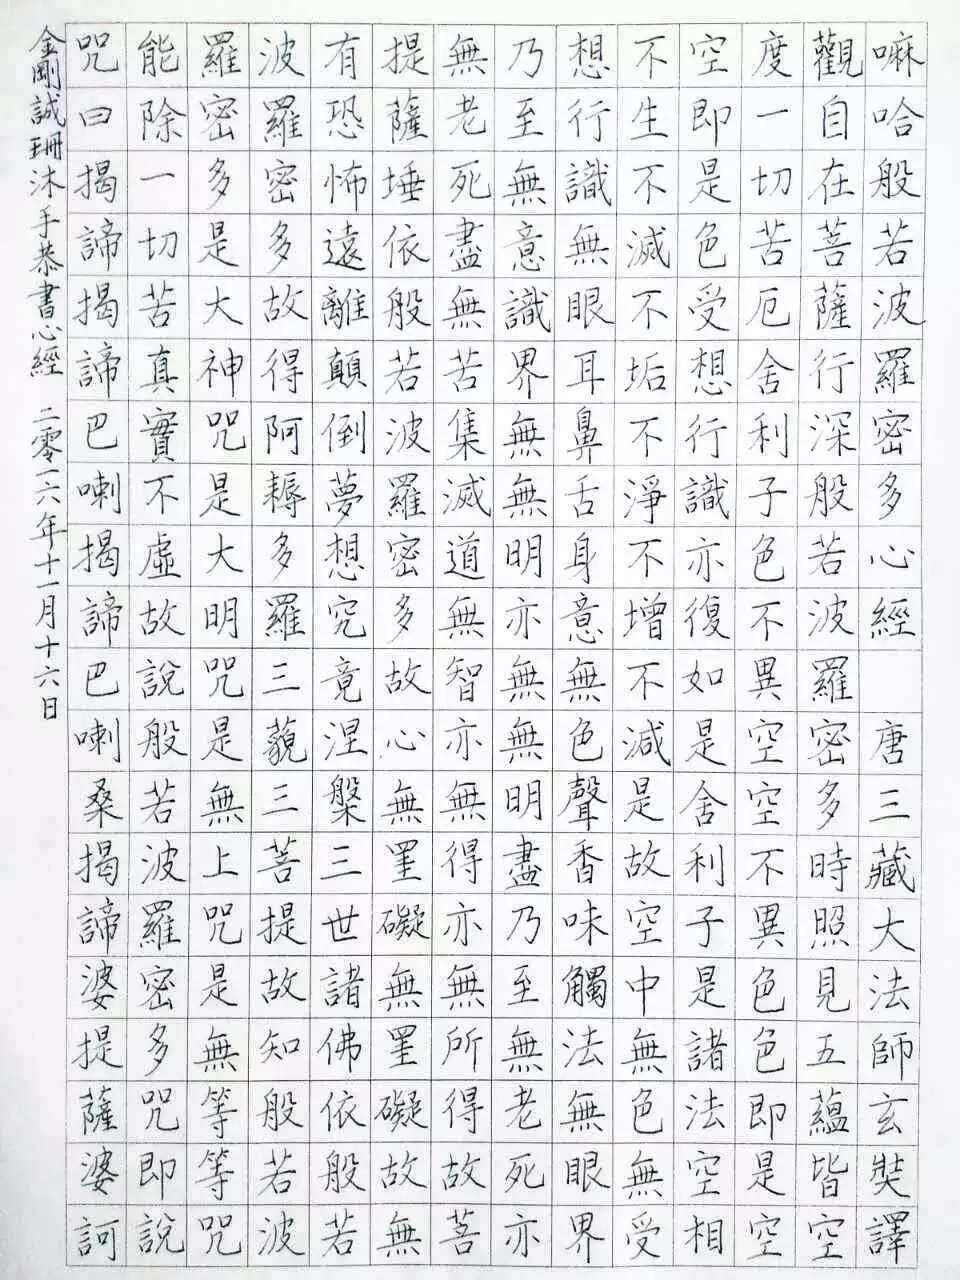 嘛哈般若波羅密多心經 唐三藏大法師玄奘譯
觀自在菩薩行深般若波羅密多時照見五蘊皆空
度一切苦厄舍利子色不異空空不異色色即是空
空即是色受想行識亦復如是舍利子是諸法空相
不生不滅不垢不淨不增不減是故空中無色無受
想行識無眼耳鼻舌身意無色聲香味觸法無眼界
乃至無意識界無無明亦無無明盡乃至無老死亦
無老死盡無苦集滅道無智亦無得亦無所得故菩
提薩埵依般若波羅密多故心無罣礙無罣礙故無
有恐怖遠離顛倒夢想究竟涅槃三世諸佛依般若
波羅密多故得阿耨多羅三藐三菩提故知般若波
羅密多是大神咒是大明咒是無上咒是無等等咒
能除一切苦真實不虛故說般若波羅密多咒即說
咒曰揭諦揭諦巴喇揭諦巴喇桑揭諦婆提薩婆訶
金剛誠珊沐手恭書心經 二零一六年十一月十六日